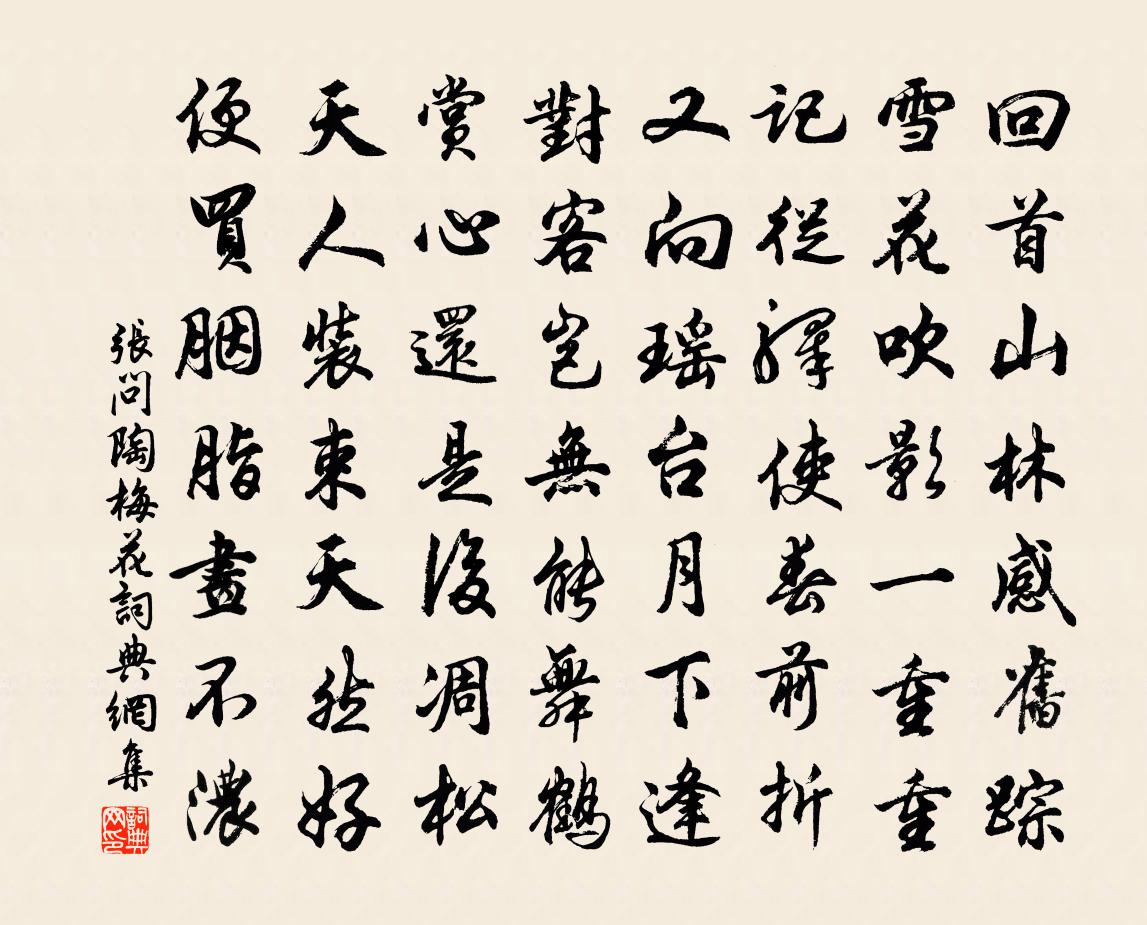 回首山林感舊踪
雪花吹影一重重
記從驛使春前折
又向瑶台月下逢
對客豈無能舞鶴
賞心還是後凋松
天人裝束天然好
便買胭脂畫不濃
張問陶梅花詞典網集
詞典网印